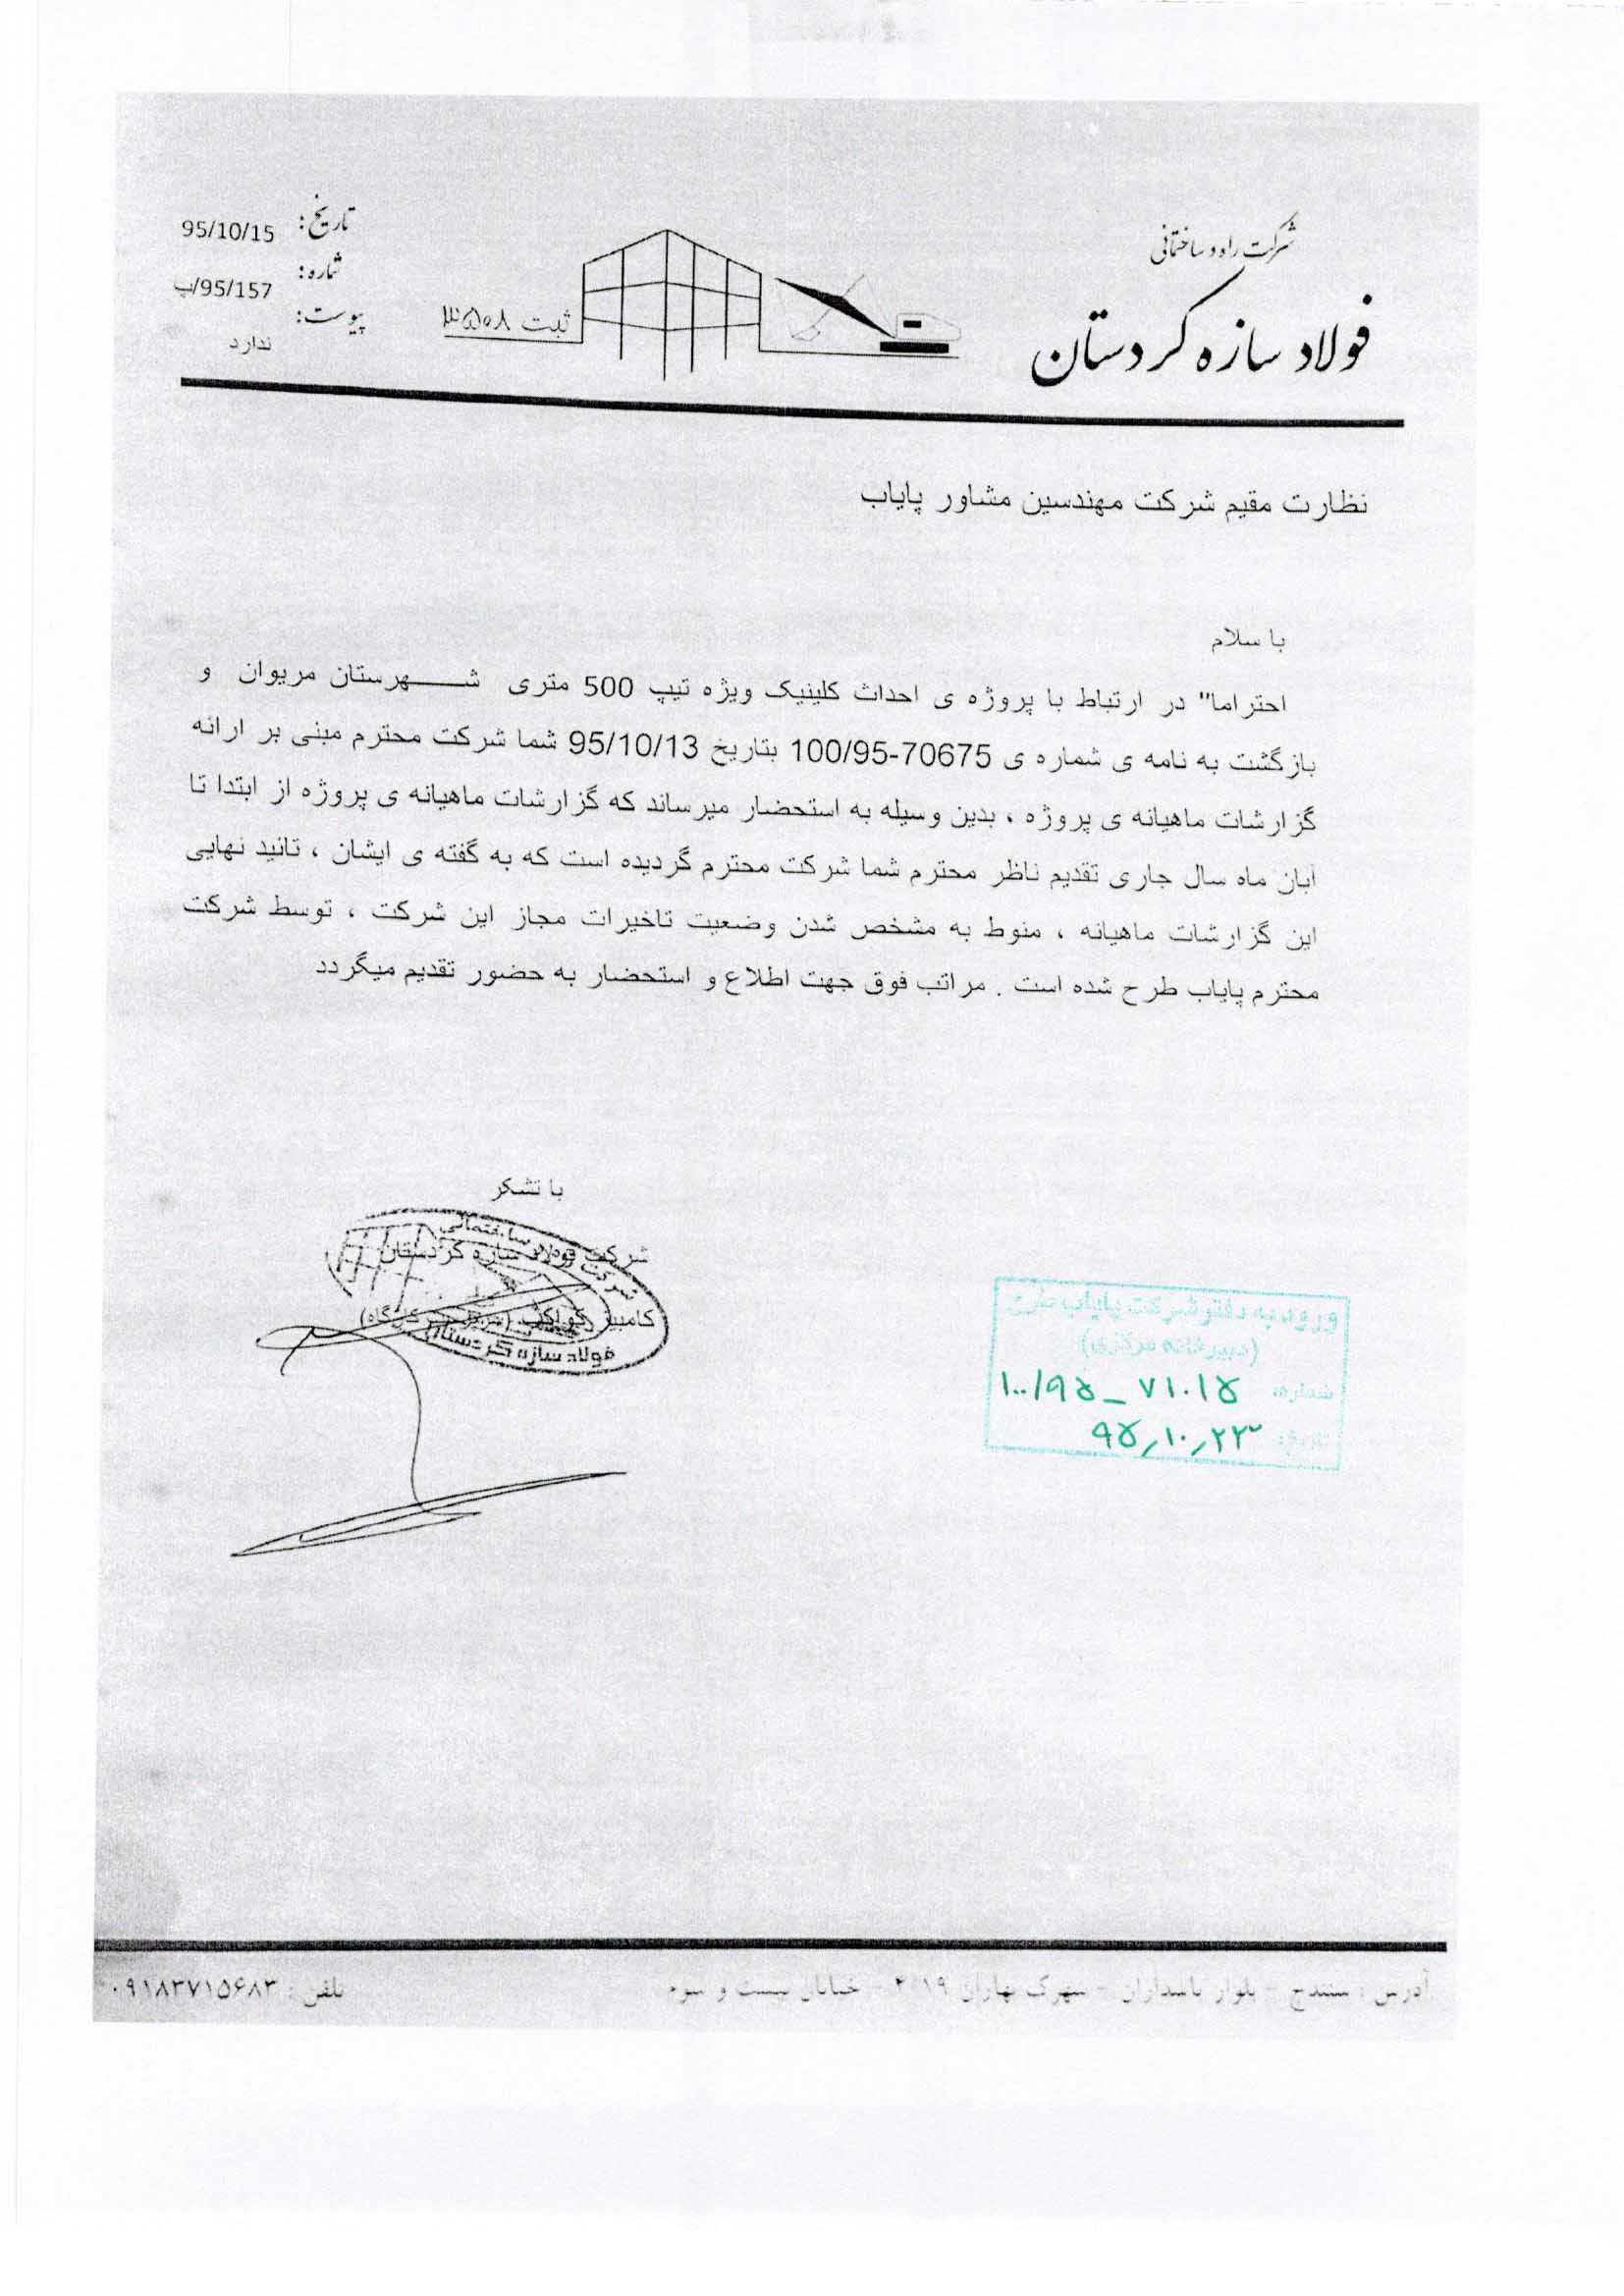 شرکت راه و ساختمانی
فولاد سازه کردستان
ثبت ۳۵۰۸
تاریخ: 95/10/15
شماره: 95/157/پ
پیوست: ندارد
نظارت مقیم شرکت مهندسین مشاور پایاب
با سلام
احتراما" در ارتباط با پروژه ی احداث کلینیک ویژه تیپ 500 متری شـــــهرستان مریوان و
بازگشت به نامه ی شماره ی 70675-100/95 بتاریخ 95/10/13 شما شرکت محترم مبنی بر ارائه
گزارشات ماهیانه ی پروژه ، بدین وسیله به استحضار میرساند که گزارشات ماهیانه ی پروژه از ابتدا تا
آبان ماه سال جاری تقدیم ناظر محترم شما شرکت محترم گردیده است که به گفته ی ایشان ، تائید نهایی
این گزارشات ماهیانه ، منوط به مشخص شدن وضعیت تاخیرات مجاز این شرکت ، توسط شرکت
محترم پایاب طرح شده است . مراتب فوق جهت اطلاع و استحضار به حضور تقدیم میگردد
با تشکر
شرکت فولاد سازه کردستان
کامبیز
فولاد سازه کردستان
ورود به دفتر شرکت پایاب طرح
(دبیرخانه مرکزی)
شماره: ۱۰۰/۹۵ـ۷۱۰۱۵
تاریخ: ۹۵/۱۰/۲۳
آدرس : سنندج - بلوار پاسداران - شهرک بهاران - خیابان بیست و سوم
تلفن : ۰۹۱۸۳۷۱۵۶۸۳